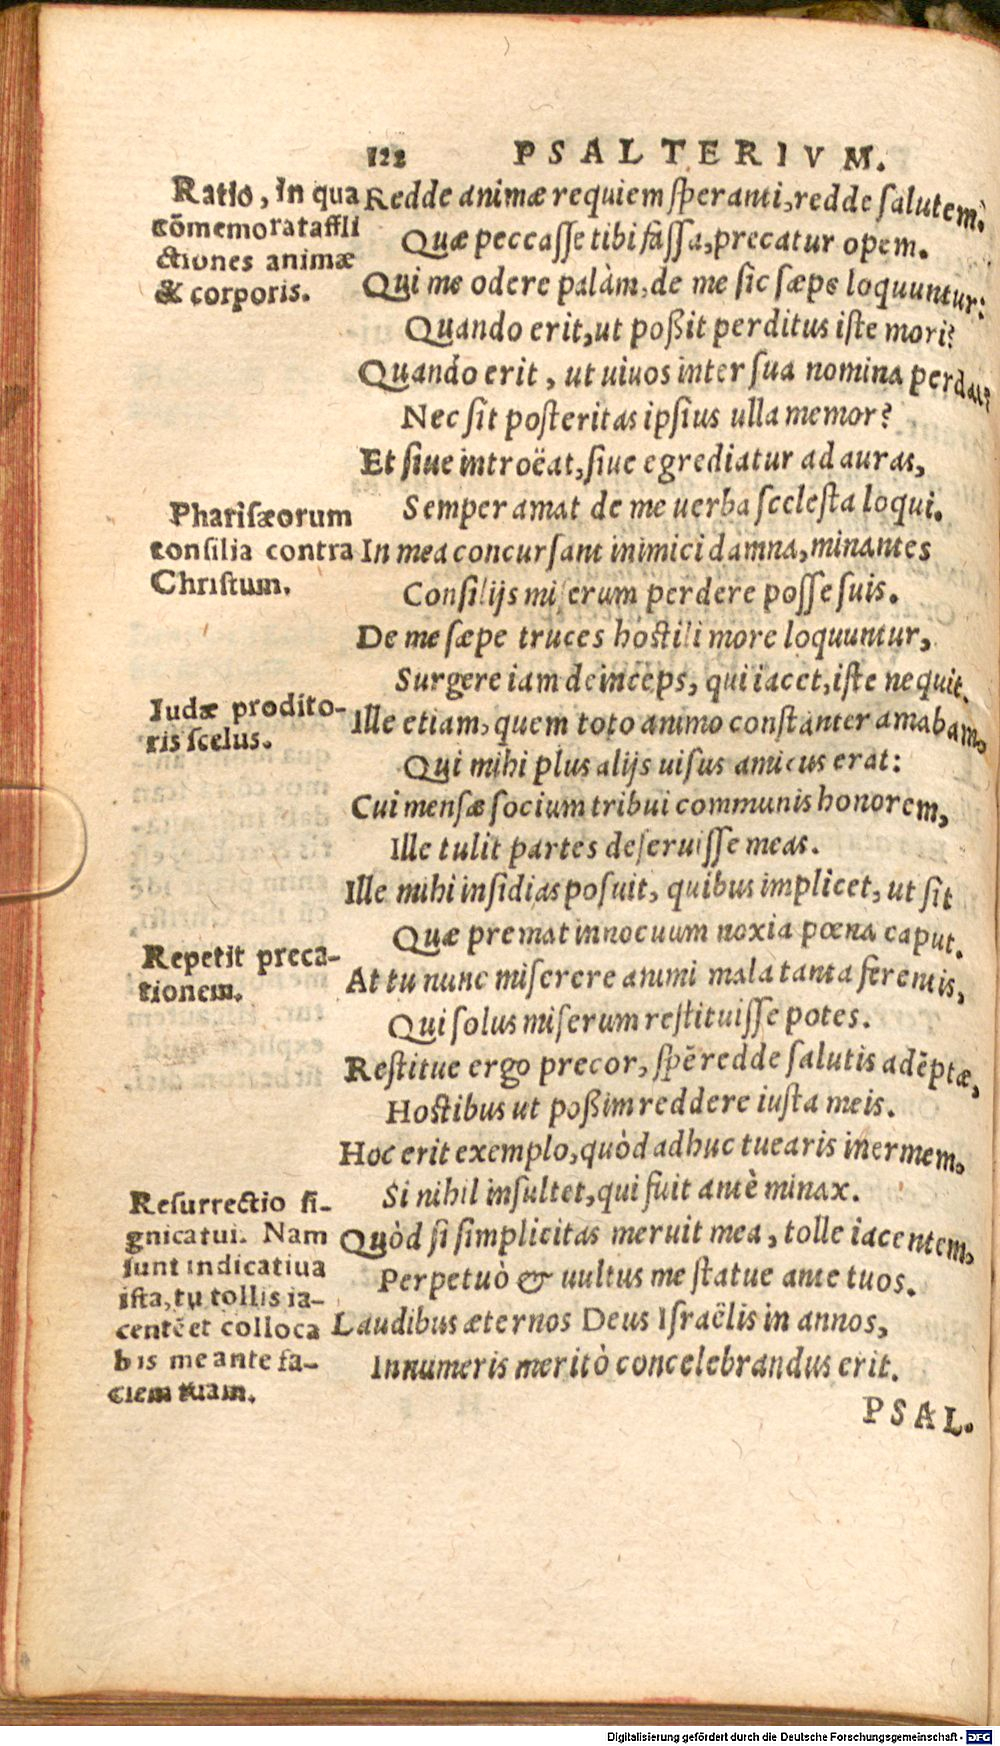 122 PSALTERIVM.
Ratio, in qua
cōmemorat affli
ctiones animæ
& corporis.
Redde animæ requiem speranti, redde salutem:
Quæ peccasse tibi fassa, precatur opem.
Qui me odere palàm, de me sic sæpe loquuntur:
Quando erit, ut poßit perditus iste mori?
Quando erit, ut uiuos inter sua nomina perdat?
Nec sit posteritas ipsius ulla memor?
Et siue introëat, siue egrediatur ad auras,
Semper amat de me uerba scelesta loqui.
Pharisæorum
consilia contra
Christum.
In mea concursant inimici damna, minantes
Consilijs miserum perdere posse suis.
De me sæpe truces hostili more loquuntur,
Surgere iam deinceps, qui iacet, iste nequit.
Iudæ prodito-
ris scelus.
Ille etiam, quem toto animo constanter amabam,
Qui mihi plus alijs uisus amicus erat:
Cui mensæ socium tribui communis honorem,
Ille tulit partes deseruisse meas.
Ille mihi insidias posuit, quibus implicet, ut sit
Quæ premat innocuum noxia pœna caput.
Repetit preca-
tionem.
At tu nunc miserere animi mala tanta ferentis,
Qui solus miserum restituisse potes.
Restitue ergo precor, spē redde salutis adēptæ,
Hostibus ut poßim reddere iusta meis.
Hoc erit exemplo, quòd adhuc tuearis inermem,
Si nihil insultet, qui fuit antè minax.
Resurrectio si-
gnicatui. Nam
sunt indicatiua
ista, tu tollis ia-
centē et colloca
bis me ante fa-
ciem tuam.
Quòd si simplicitas meruit mea, tolle iacentem,
Perpetuò & uultus me statue ante tuos.
Laudibus æternos Deus Israëlis in annos,
Innumeris meritò concelebrandus erit.
PSAL.
Digitalisierung gefördert durch die Deutsche Forschungsgemeinschaft - DFG